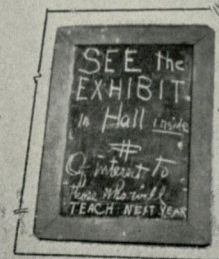 SEE the
EXHIBIT
In Hall inside
#
Of interest to
those who will
TEACH NEXT YEAR